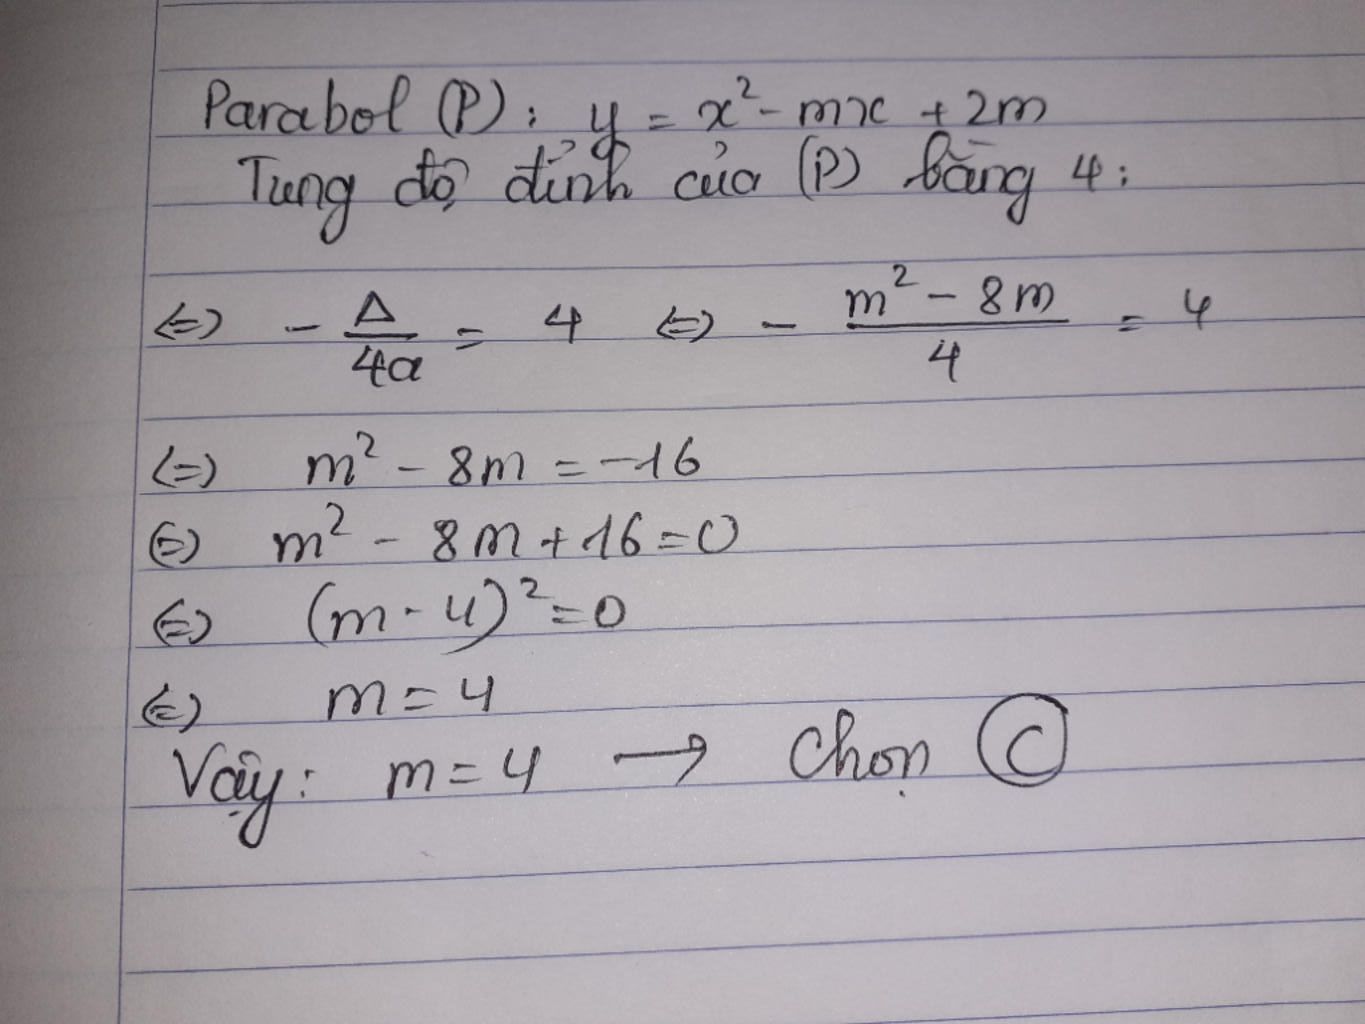 Parabol (P): y = x² - mx + 2m
Tung độ đỉnh của (P) bằng 4:
<=> - Δ/4a = 4 <=> - (m² - 8m)/4 = 4
<=> m² - 8m = -16
<=> m² - 8m + 16 = 0
<=> (m - 4)² = 0
<=> m = 4
Vậy: m = 4 → Chọn Ⓒ